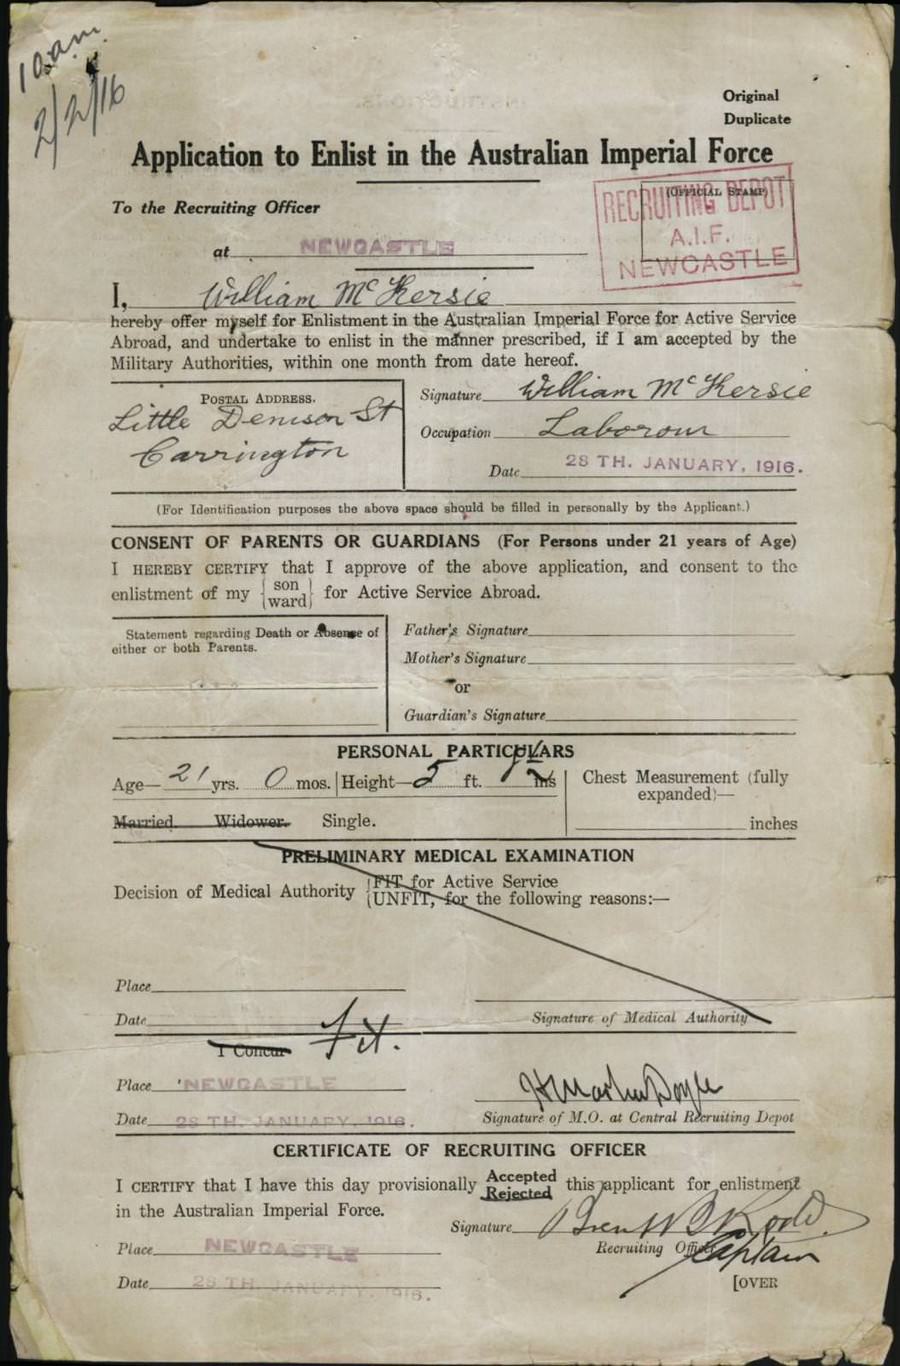 10 am
2/2/16
Original
Duplicate
Application to Enlist in the Australian Imperial Force
(OFFICIAL STAMP)
RECRUITING DEPOT
A.I.F.
NEWCASTLE
To the Recruiting Officer
at NEWCASTLE
I, William McKersie
hereby offer myself for Enlistment in the Australian Imperial Force for Active Service
Abroad, and undertake to enlist in the manner prescribed, if I am accepted by the
Military Authorities, within one month from date hereof.
POSTAL ADDRESS.
Little Denison St
Carrington
Signature William McKersie
Occupation Labourer
Date 28 TH. JANUARY, 1916.
(For Identification purposes the above space should be filled in personally by the Applicant.)
CONSENT OF PARENTS OR GUARDIANS (For Persons under 21 years of Age)
I HEREBY CERTIFY that I approve of the above application, and consent to the
enlistment of my {son ward} for Active Service Abroad.
Statement regarding Death or Absense of
either or both Parents.
Father's Signature
Mother's Signature
or
Guardian's Signature
PERSONAL PARTICULARS
Age— 21 yrs. 0 mos. Height— 5 ft. ins
Chest Measurement (fully
expanded)—
inches
Married Widower. Single.
PRELIMINARY MEDICAL EXAMINATION
Decision of Medical Authority {FIT for Active Service
{UNFIT, for the following reasons:—
Place
Date
Signature of Medical Authority
I Concur Fit.
Place NEWCASTLE
Date 28 TH. JANUARY, 1916.
Signature of M.O. at Central Recruiting Depot
CERTIFICATE OF RECRUITING OFFICER
I CERTIFY that I have this day provisionally Accepted Rejected this applicant for enlistment
in the Australian Imperial Force.
Signature
Recruiting Officer
Captain
Place NEWCASTLE
Date 28 TH. JANUARY, 1916.
[OVER